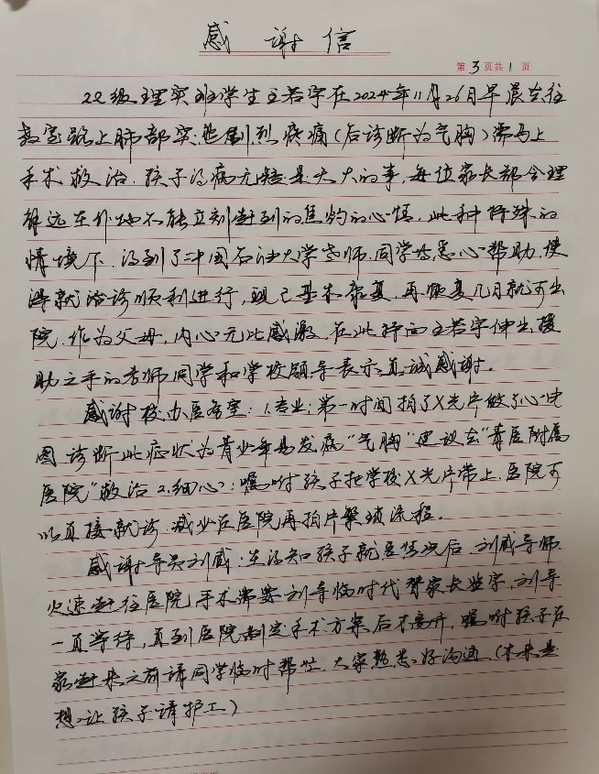 感谢信
第3页共1页
22级理实班学生王若宇在2024年11月26日早晨去往
教室路上肺部突然剧烈疼痛(后诊断为气胸)需马上
手术救治.孩子得病无疑是天大的事,每位家长都会理
解远在外地不能立刻赶到的焦灼的心情,此种特殊的
情境下.得到了中国石油大学老师.同学悉心帮助,使
得就治诊顺利进行,现已基本康复.再恢复几日就可出
院.作为父母,内心无比感激,在此特向王若宇伸出援
助之手的老师同学和学校领导表示真诚感谢.
感谢校办医务室:1.专业:第一时间拍了X光片做了心电
图诊断此症状为青少年易发病"气胸"建议去"青医附属
医院"救治2.细心:嘱咐孩子把学校X光片带上.医院可
以直接就诊减少在医院再拍片繁琐流程.
感谢导员刘威:在得知孩子就医情况后.刘威导师.
火速赶往医院,手术需要刘导临时代替家长签字,刘导
一直等待,直到医院制定手术方案后才离开,嘱咐孩子在
家赶来之前请同学临时帮忙.大家熟悉.好沟通(本来是
想让孩子请护工)